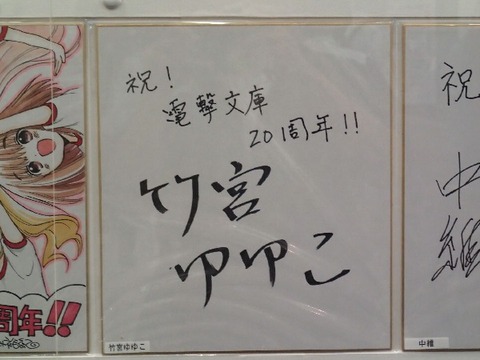 祝!
電撃文庫
20周年!!
竹宮
ゆゆこ
竹宮ゆゆこ
周年!!
祝
中
中雑